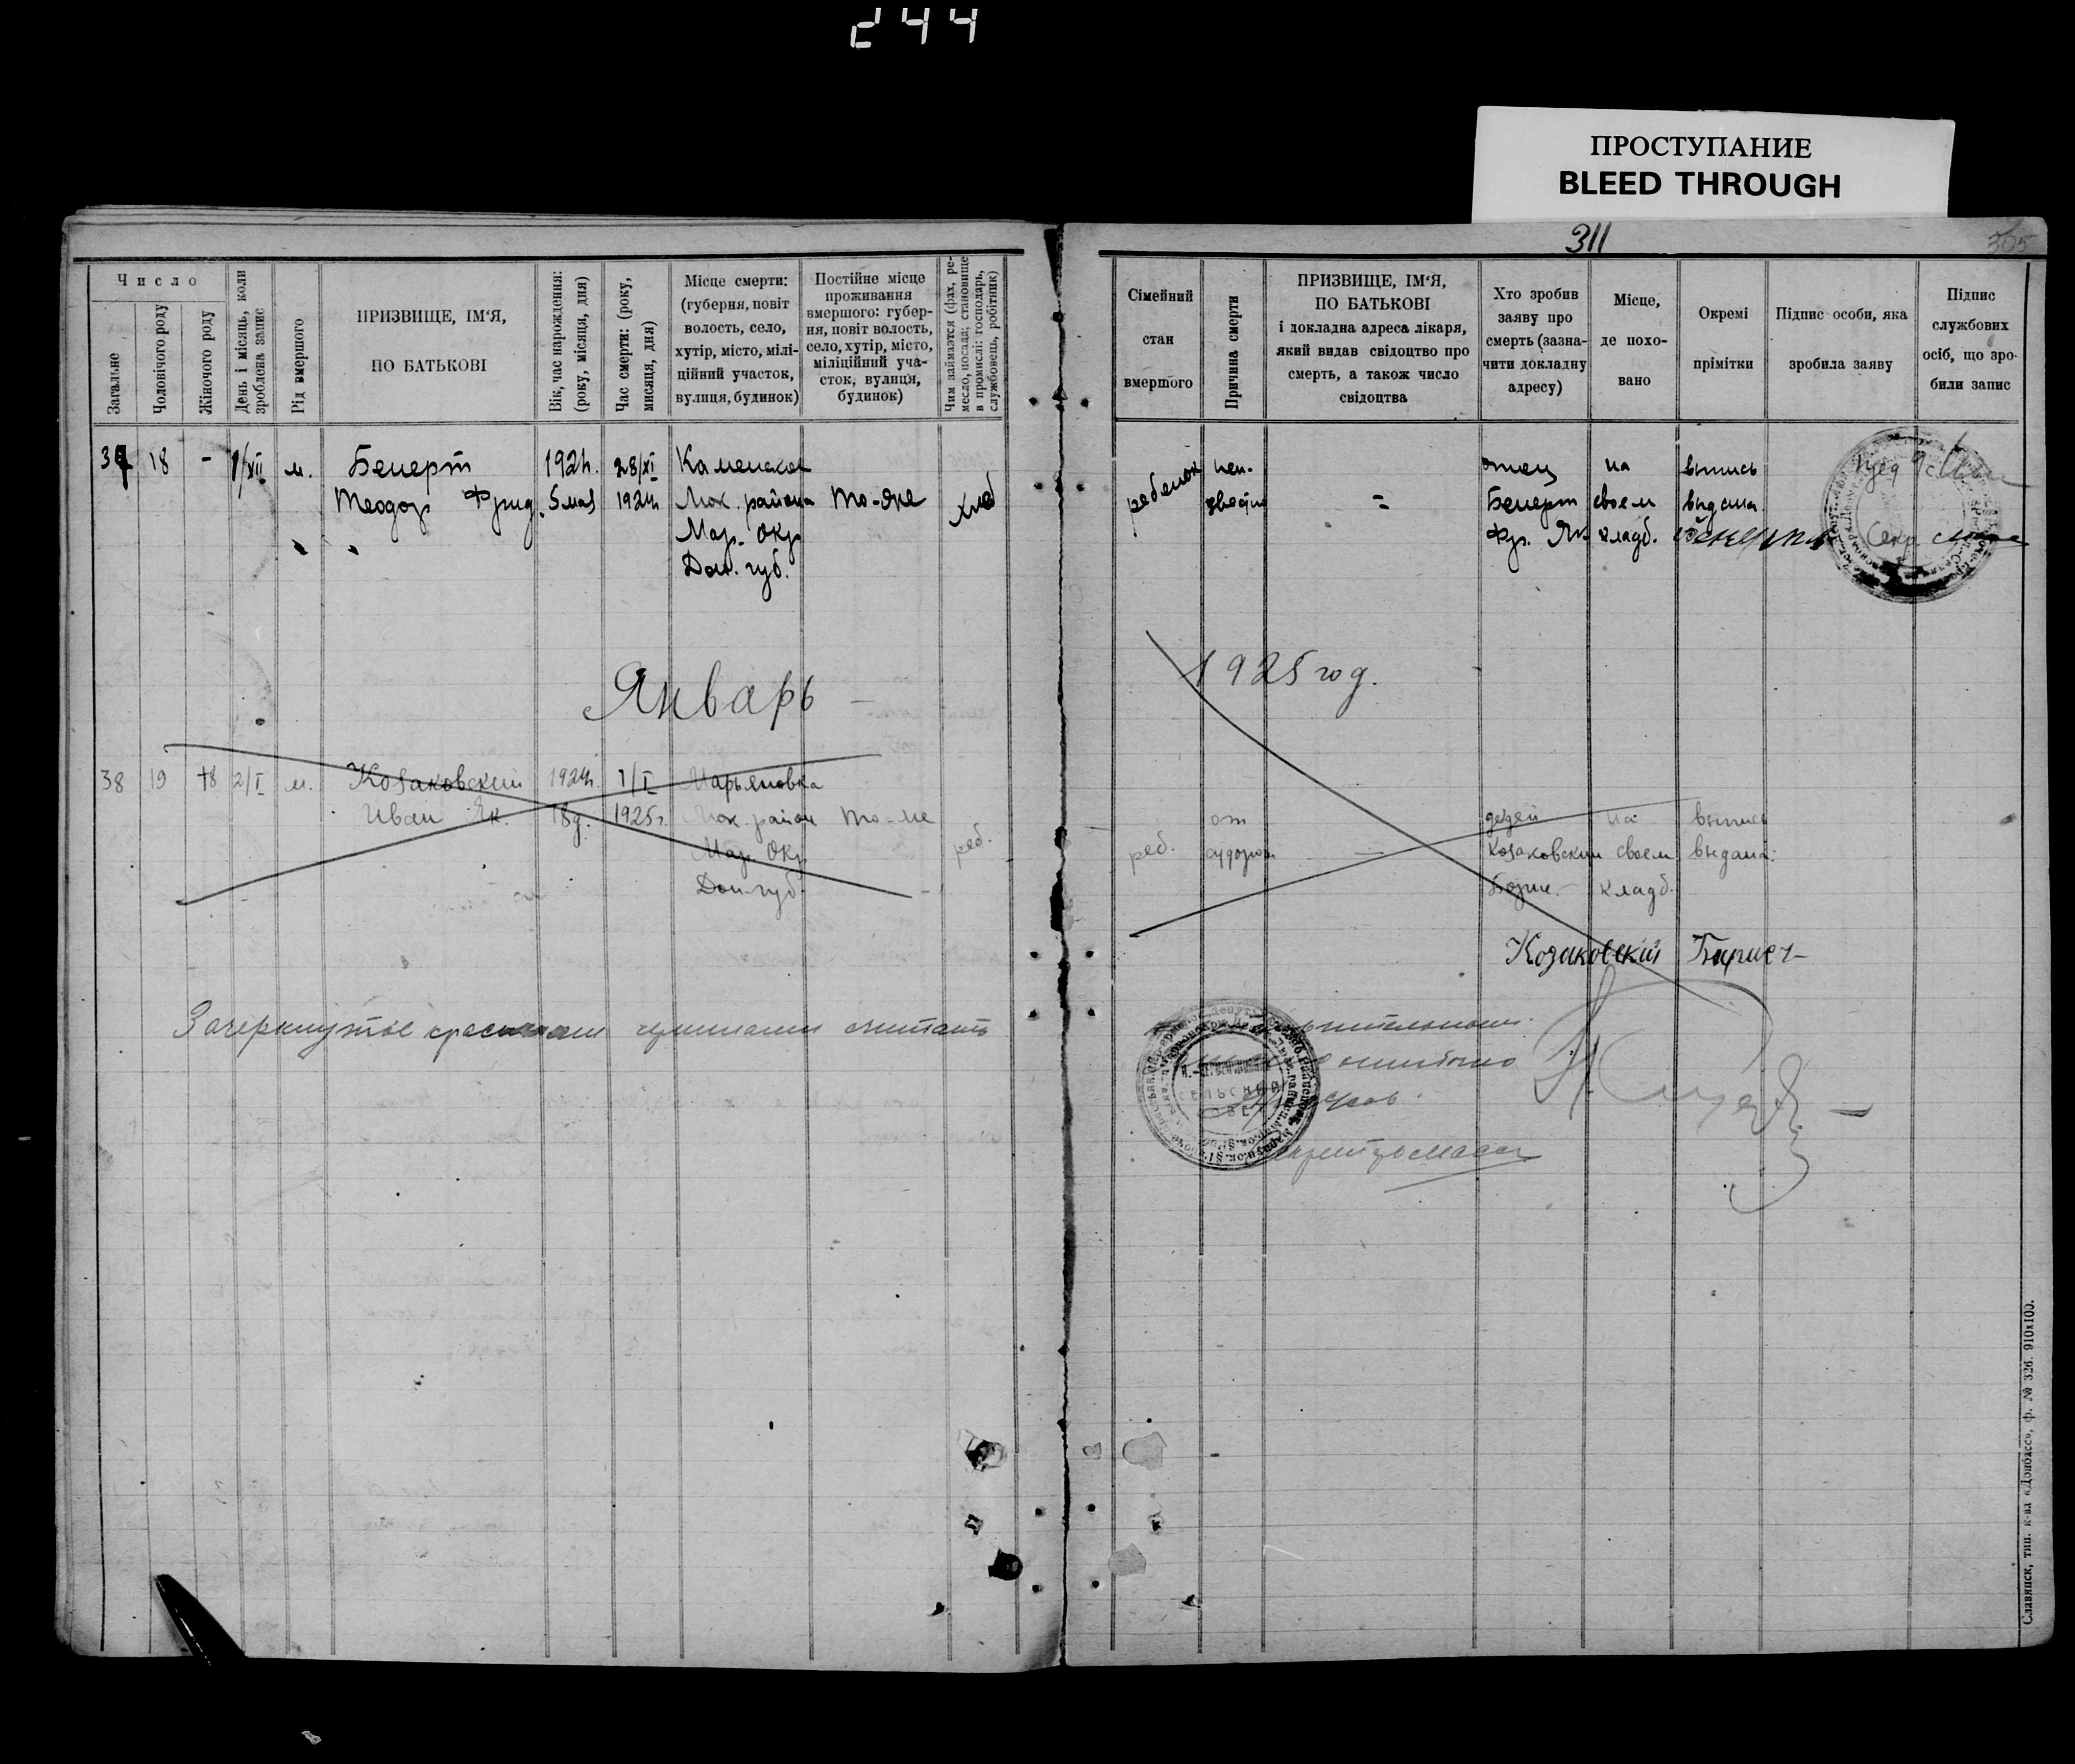 244
ПРОСТУПАНИЕ
BLEED THROUGH
311
305
Число
Загальне
Чоловічого роду
Жіночого роду
День і місяць, коли
зроблена запис
Рід вмершого
ПРИЗВИЩЕ, ІМ'Я,
ПО БАТЬКОВІ
Вік, час нарождення:
(року, місяця, дня)
Час смерти: (року,
мисяця, дня)
Місце смерти:
(губерня, повіт
волость, село,
хутір, місто, мілі-
ційний участок,
вулиця, будинок)
Постійне місце
проживання
вмершого: губер-
ня, повіт волость,
село, хутір, місто,
міліційний уча-
сток, вулиця,
будинок)
Чим займаєтся (фах, ре-
месло, посада; становище
в промислі: господарь,
службовець, робітник)
Сімейний
стан
вмершого
Причина смерти
ПРИЗВИЩЕ, ІМ'Я,
ПО БАТЬКОВІ
і докладна адреса лікаря,
який видав свідоцтво про
смерть, а також число
свідоцтва
Хто зробив
заяву про
смерть (зазна-
чити докладну
адресу)
Місце,
де похо-
вано
Окремі
прімітки
Підпис особи, яка
зробила заяву
Підпис
службових
осіб, що зро-
били запис
37 18 - 1/XII м. Бенерт 1924. 28/XI Каменская
Теодор Фрид. 5 мая 1924 Мок. района То-же хлеб
Мар. Окр
Дон. губ.
ребенок неи- отец на выпись
звестно = Бенерт своем выдана.
Фр. Як. кладб. Бенерт
Пред
Секр
Январь –
1925 год.
38 19 18 2/I м. Козаковский 1924 1/I Марьяновка
Иван Як. 18 д. 1925 г. Мок. район То-же реб.
Мар. Окр.
Дон. губ.
от дедей на выпись
реб. судорог — Козаковский своем выдана.
кладб.
Козаковский
Зачеркнутое красными чернилами считать
ошибочно
СЕЛЬСКИЙ
Славянск, тип. к-ва «Донбасс», ф. № 326. 910х100.